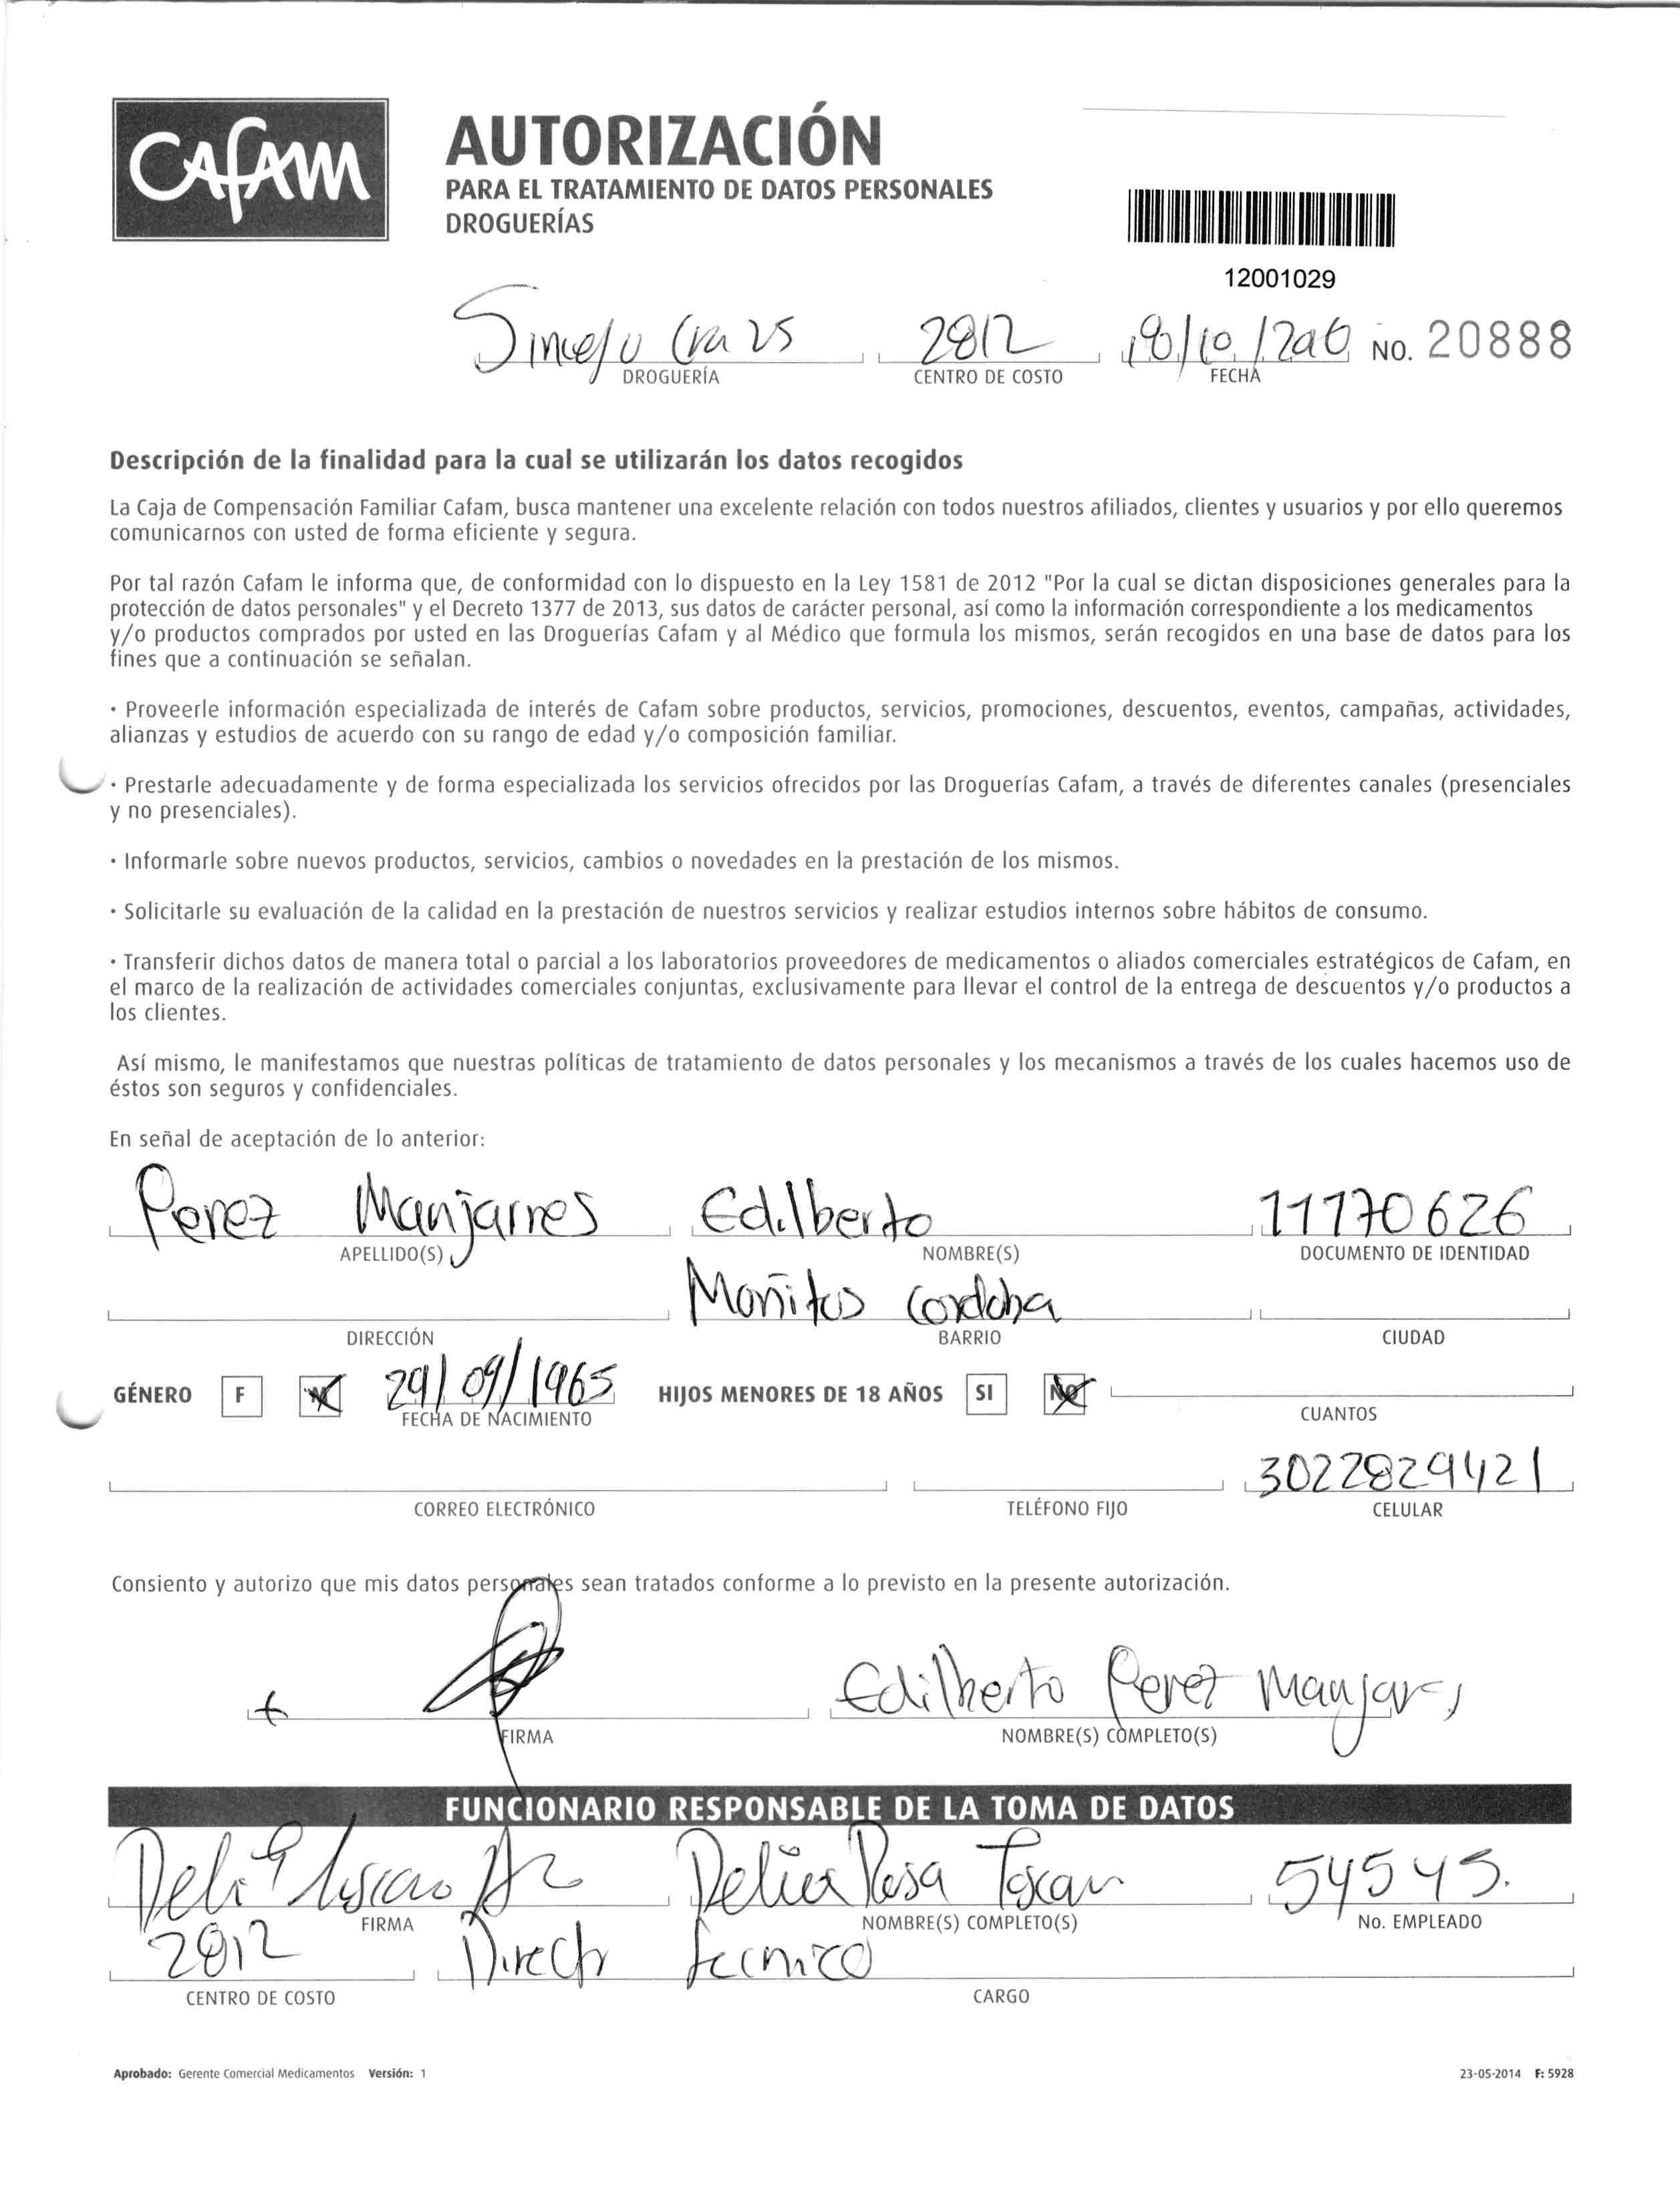 Cafam
AUTORIZACIÓN
PARA EL TRATAMIENTO DE DATOS PERSONALES
DROGUERÍAS
12001029
Sincejo Cra 25 2812 No. 20888
DROGUERÍA CENTRO DE COSTO FECHA
Descripción de la finalidad para la cual se utilizarán los datos recogidos
La Caja de Compensación Familiar Cafam, busca mantener una excelente relación con todos nuestros afiliados, clientes y usuarios y por ello queremos
comunicarnos con usted de forma eficiente y segura.
Por tal razón Cafam le informa que, de conformidad con lo dispuesto en la Ley 1581 de 2012 "Por la cual se dictan disposiciones generales para la
protección de datos personales" y el Decreto 1377 de 2013, sus datos de carácter personal, así como la información correspondiente a los medicamentos
y/o productos comprados por usted en las Droguerías Cafam y al Médico que formula los mismos, serán recogidos en una base de datos para los
fines que a continuación se señalan.
· Proveerle información especializada de interés de Cafam sobre productos, servicios, promociones, descuentos, eventos, campañas, actividades,
alianzas y estudios de acuerdo con su rango de edad y/o composición familiar.
· Prestarle adecuadamente y de forma especializada los servicios ofrecidos por las Droguerías Cafam, a través de diferentes canales (presenciales
y no presenciales).
· Informarle sobre nuevos productos, servicios, cambios o novedades en la prestación de los mismos.
· Solicitarle su evaluación de la calidad en la prestación de nuestros servicios y realizar estudios internos sobre hábitos de consumo.
· Transferir dichos datos de manera total o parcial a los laboratorios proveedores de medicamentos o aliados comerciales estratégicos de Cafam, en
el marco de la realización de actividades comerciales conjuntas, exclusivamente para llevar el control de la entrega de descuentos y/o productos a
los clientes.
Así mismo, le manifestamos que nuestras políticas de tratamiento de datos personales y los mecanismos a través de los cuales hacemos uso de
éstos son seguros y confidenciales.
En señal de aceptación de lo anterior:
Perez Manjarres Edilberto 11170626
APELLIDO(S) NOMBRE(S) DOCUMENTO DE IDENTIDAD
Moñitos Cordoba
DIRECCIÓN BARRIO CIUDAD
GÉNERO F M 29/09/1965 HIJOS MENORES DE 18 AÑOS SI NO
FECHA DE NACIMIENTO CUANTOS
3022829421
CORREO ELECTRÓNICO TELÉFONO FIJO CELULAR
Consiento y autorizo que mis datos personales sean tratados conforme a lo previsto en la presente autorización.
Edilberto Perez Manjarres
FIRMA NOMBRE(S) COMPLETO(S)
FUNCIONARIO RESPONSABLE DE LA TOMA DE DATOS
Delia Rosa Toscan 54545.
FIRMA NOMBRE(S) COMPLETO(S) No. EMPLEADO
2812 Direct tecnico
CENTRO DE COSTO CARGO
Aprobado: Gerente Comercial Medicamentos Versión: 1 23-05-2014 F: 5928